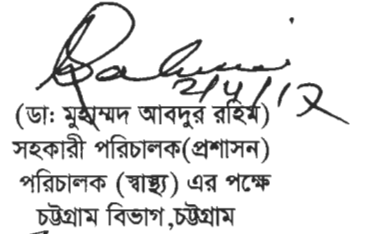 ২/৫/১২
(ডা: মুহাম্মদ আবদুর রহিম)
সহকারী পরিচালক(প্রশাসন)
পরিচালক (স্বাস্থ্য) এর পক্ষে
চট্টগ্রাম বিভাগ,চট্টগ্রাম